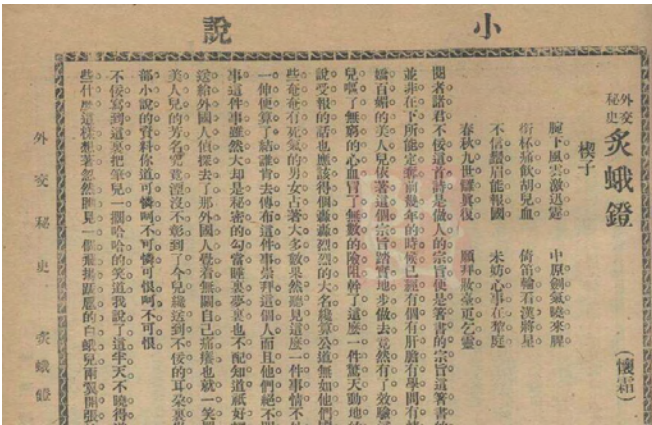 小說
外交秘史 炙蛾鐙 (懷霜)
楔子
腕下風雲激迅霆 中原劍氣曉來腥
銜杯痛飲胡兒血 倚笛輪石漢將星
不信鬚眉能報國 未妨心事在犂庭
春秋九世讎眞復 願拜敗臺更乞靈
閱者諸君不佞這首詩是做人的宗旨便是著書的宗旨這著書的
並非在下所能定奪前幾年的時候已經有個有肝膽有學問有
嬌百媚的美人兒依著這個宗旨踏實地步做去竟然有了效驗
兒嘔了無窮的心血冒了無數的險阻幹了這麼一件驚天動地的
說受報的話也應該得個轟轟烈烈的大名纔算公道無如他們
些奄奄有死氣的男女占著大多數果然聽見這麼一件事情不
一伸便算了結誰肯去傳布這件事崇拜這個人而且他們絕不
事這件事雖然大却是秘密的勾當睡裏夢裏也不配知道祇好
送給外國人偵探去了那外國人覺着無關自己痛癢也就一笑
美人兒的芳名究竟湮沒不彰到了今兒纔送到不佞的耳朶裏
部小說的資料你道可憐呵不可憐可恨呵不可恨
不佞寫到這裏把筆兒一擱哈哈的笑道我說了這半天不曉得
些什麼這樣想著忽然瞧見一個飛揚跋扈的白蛾兒兩翼開張
外交秘史 炙蛾鐙